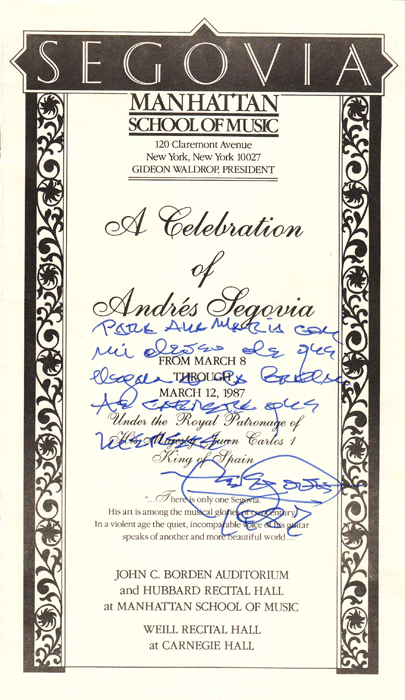 SEGOVIA
MANHATTAN
SCHOOL OF MUSIC
120 Claremont Avenue
New York, New York 10027
GIDEON WALDROP, PRESIDENT
A Celebration
of
Andrés Segovia
Para Ana Maria con
mi deseo de que
FROM MARCH 8
THROUGH
MARCH 12, 1987
que
Under the Royal Patronage of
His Majesty Juan Carlos 1
King of Spain
"...There is only one Segovia.
His art is among the musical glories of our century.
In a violent age the quiet, incomparable voice of his guitar
speaks of another and more beautiful world...
JOHN C. BORDEN AUDITORIUM
and HUBBARD RECITAL HALL
at MANHATTAN SCHOOL OF MUSIC
WEILL RECITAL HALL
at CARNEGIE HALL